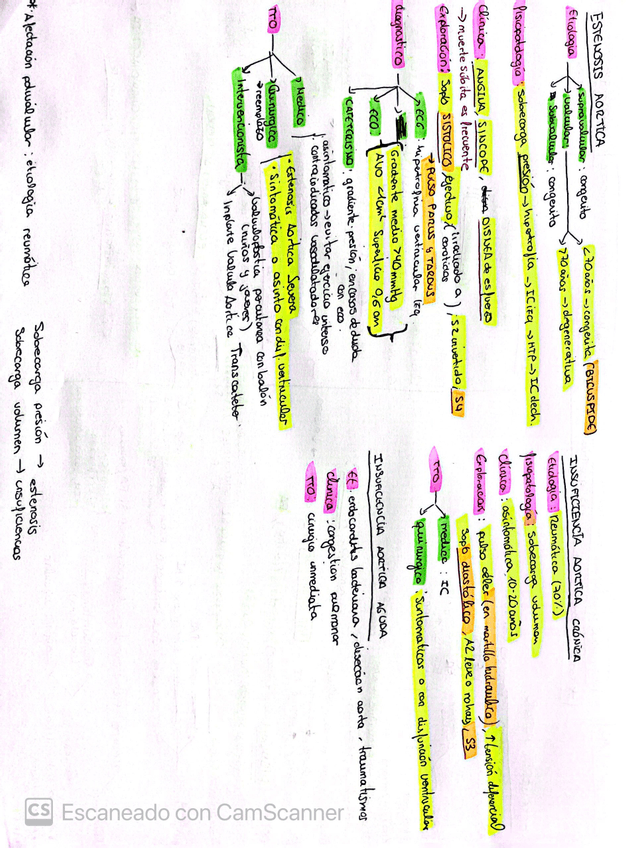 ESTENOSIS AORTICA
Etiologia
supravalvular: congenito
valvular:
<70 años → congenita (BICUSPIDE)
>70 años → degenerativa
Subvalvular: congenito
fisiopatología: sobrecarga presión → hipertrofia → IC izq → HTP → IC dech.
Clínica: ANGINA, SINCOPE, DISNEA de esfuerzo
→ muerte súbita es frecuente
Exploracion: Soplo SISTOLICO, eyectivo (irradiado a carotidas), S2 invertido, S4
→ PULSO PARUS Y TARDUS
diagnostico
ECG: hipertrofia ventricular izq
ECO
Gradiente medio >40 mmHg
AVO <1cm² Superficie 0,6 cm
CATETERISMO: gradiente presión, en casos de duda
con eco.
TTO
Medico
asintomatico → evitar ejercicio intenso
contraindicados vasodilatadores
Quirurgico
→ reemplazo
• Estenosis Aortica Severa
• Sintomática o asinto con dyf. ventricular
Intervencionista
→ Valvuloplastia percutanea con balón
(niños y jovenes)
→ Implante Valvula Aortica Transcateter.
* Afectación polivalvular: etiologica reumática
INSUFICIENCIA AORTICA CRÓNICA
Etiologia: Reumática (70%)
fisiopatología: Sobrecarga volumen
Clínica: asintomática 10-20 años
Exploracion: pulso celler (en martillo hidraulico), ↑ tensión diferencial
Soplo diastólico, A2 leve o no hay, S3
TTO
medico: IC
quirurgico: Sintomaticos o con disfunción ventricular
INSUFICIENCIA AORTICA AGUDA
Et: endocarditis bacteriana, disección aorta, traumatismos
Clinica: congestion pulmonar
TTO: cirugia inmediata
Sobrecarga presión → estenosis
Sobrecarga volumen → insuficiencias
CS Escaneado con CamScanner